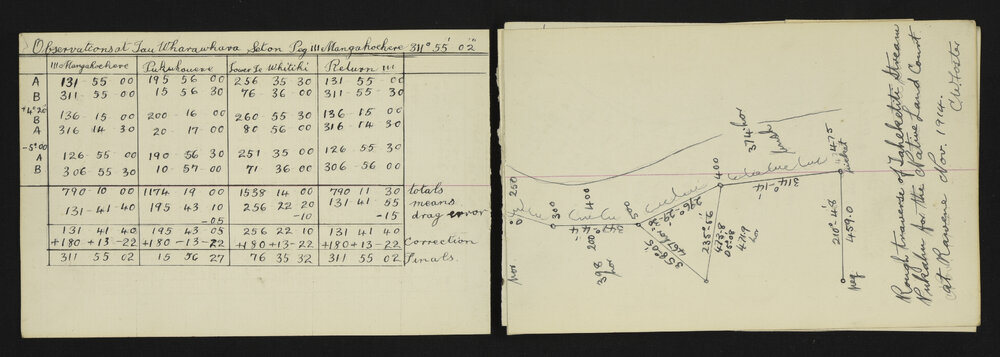 Observations at Tau Wharawhara Set on Peg III Mangahochere 311° 55' 02"
III Mangahochere Pukuhouere Tower Te Whitihi Return III
A 131 - 55 00 195 56 00 256 35 30 131 55 00
B 311 - 55 - 00 15 56 30 76 - 36 00 311 - 55 - 30
+4° 20
B 136 - 15 00 200 - 16 00 260 55 30 136 - 15 00
A 316 14 - 30 20 - 17 - 00 80 56 00 316 - 14 30
-5° 00
A 126 - 55 00 190 - 56 30 251 35 00 126 - 55 30
B 306 55 30 10 - 57 - 00 71 36 00 306 - 56 00
790 - 10 00 1174 19 00 1538 14 00 790 11 30 totals
131 - 41 - 40 195 43 10 256 22 20 131 41 - 55 means
-05 -10 -15 drag error
131 41 40 195 43 05 256 22 10 131 41 40
+180 +13 -22 +180 -13 -22 +180 +13 -22 +180 +13 -22 correction
311 55 02 15 56 27 76 35 32 311 55 02 Finals.
250
300
400
200
500
398
235° - 56
473.8
05.08
400
374
bush
314 - 14
475
picket
210° - 4.8
459.0
peg
Rough traverse of Taheketiti Stream
Pukahu for the Native Land Court
at Rawene Nov. 1914.
C W Foster